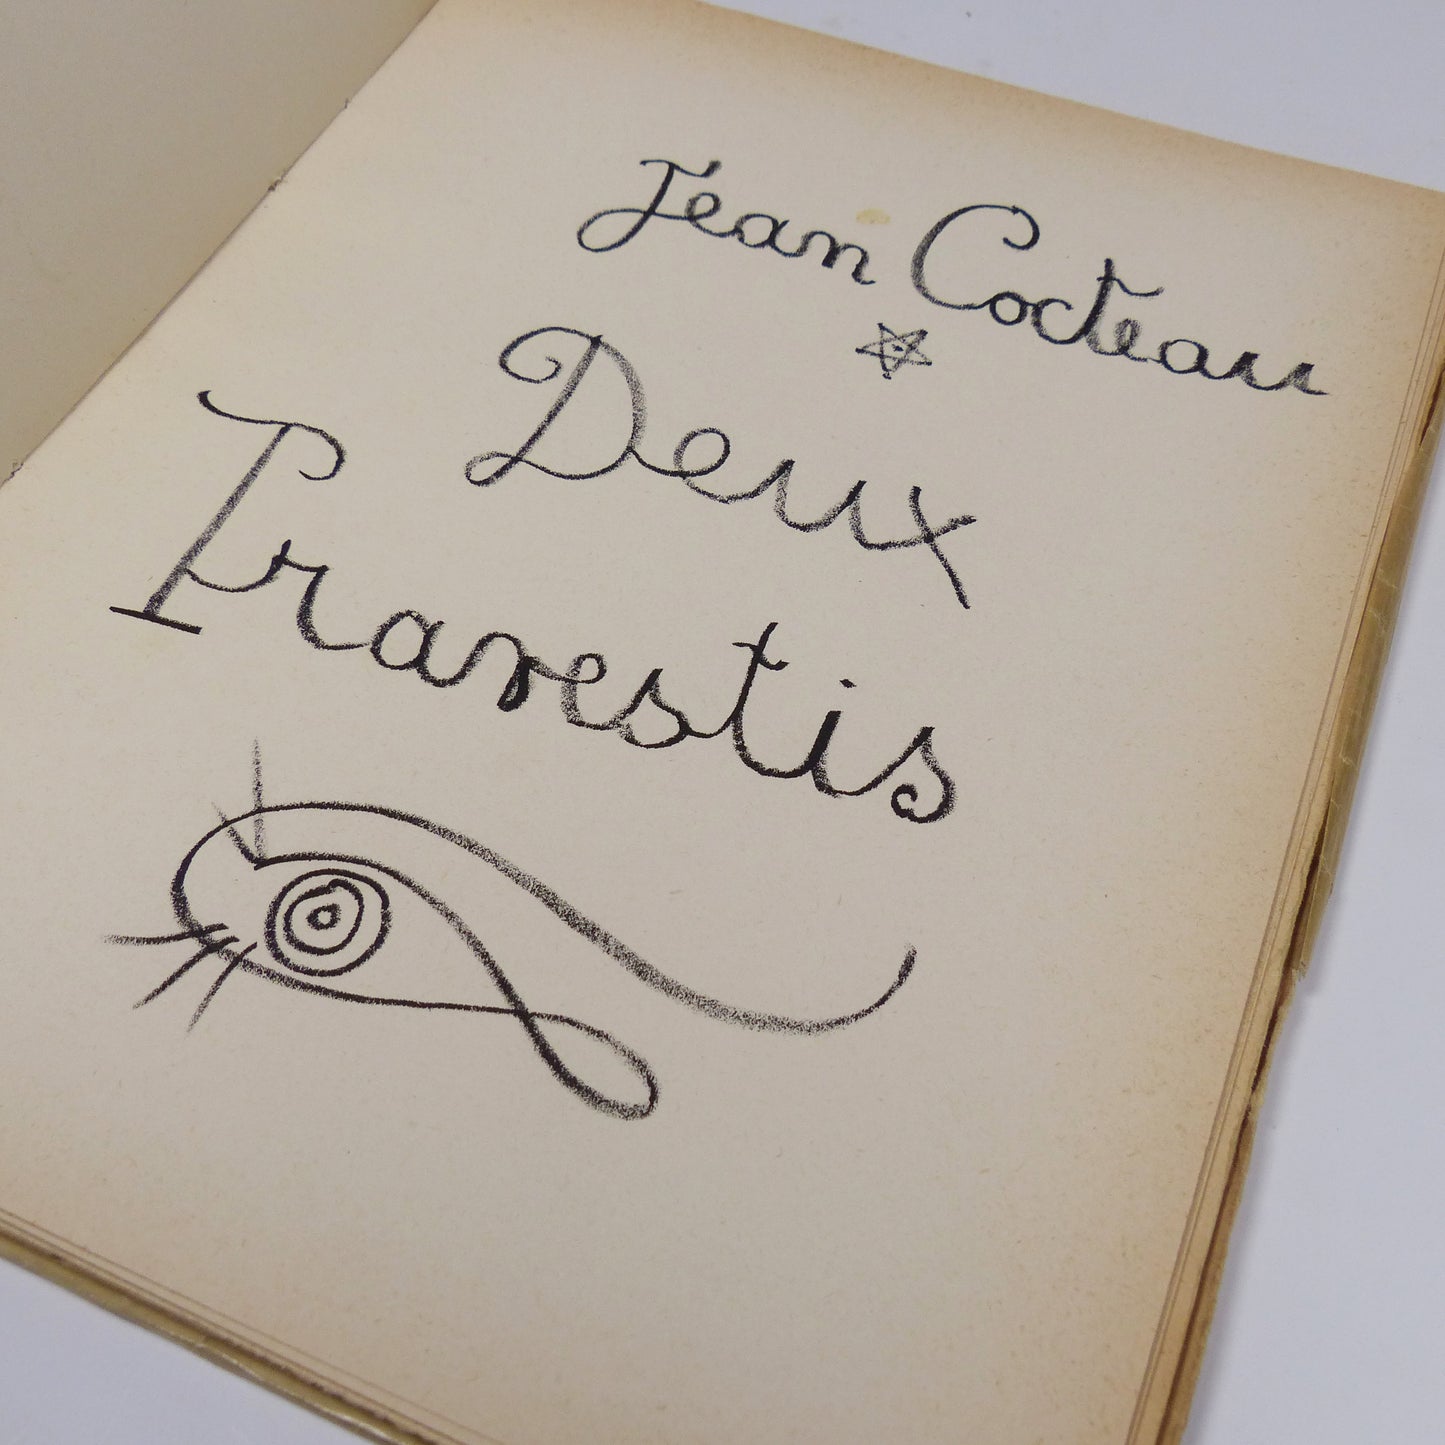 Jean Cocteau
Deux
Travestis